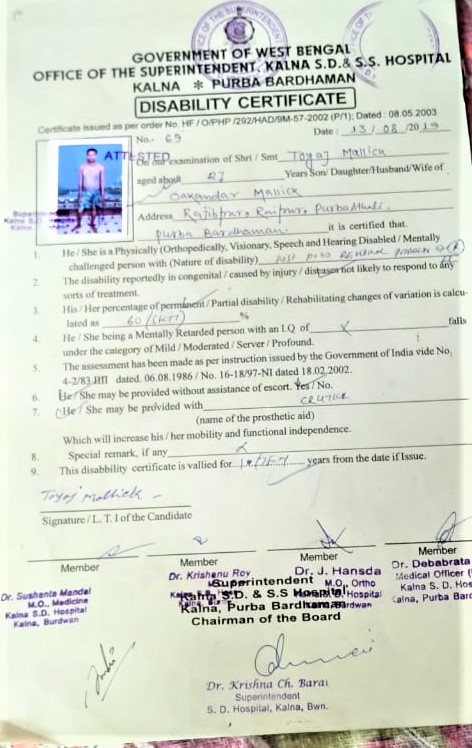 GOVERNMENT OF WEST BENGAL
OFFICE OF THE SUPERINTENDENT, KALNA S.D.& S.S. HOSPITAL
KALNA * PURBA BARDHAMAN
DISABILITY CERTIFICATE
Certificate issued as per order No. HF / O/PHP /292/HAD/9M-57-2002 (P/1); Dated : 08.05.2003
No.- 69
Date : 13/08/2019
ATTESTED
On our examination of Shri / Smt Toyaj Mallick
aged about Years Son/ Daughter/Husband/Wife of
Mallick
Address
Purba Bardhaman it is certified that.
1. He / She is a Physically (Orthopedically, Visionary, Speech and Hearing Disabled / Mentally
challenged person with (Nature of disability) Post
2. The disability reportedly in congenital / caused by injury / distases not likely to respond to any
sorts of treatment.
3. His / Her percentage of permanent / Partial disability / Rehabilitating changes of variation is calcu-
lated as 60 %
4. He / She being a Mentally Retarded person with an I.Q of X falls
under the category of Mild / Moderated / Server / Profound.
5. The assessment has been made as per instruction issued by the Government of India vide No.
4-2/83 dated. 06.08.1986 / No. 16-18/97-NI dated 18.02.2002.
6. He / She may be provided without assistance of escort. Yes / No.
7. He / She may be provided with
(name of the prosthetic aid)
Which will increase his / her mobility and functional independence.
8. Special remark, if any
9. This disabbility certificate is vallied for years from the date if Issue.
Toyaj Mallick
Signature / L. T. I of the Candidate
Member Member Member Member
Dr. Sushanta Mandal
M.O., Medicine
Kalna S.D. Hospital
Kalna, Burdwan
Dr. Krishanu Roy
Dr. J. Hansda
M.O., Ortho
Dr. Debabrata
Medical Officer
Kalna S. D.
Superintendent
Kalna S.D. & S.S Hospital
Kalna, Purba Bardhaman
Chairman of the Board
Dr. Krishna Ch. Barai
Superintendent
S. D. Hospital, Kalna, Bwn.